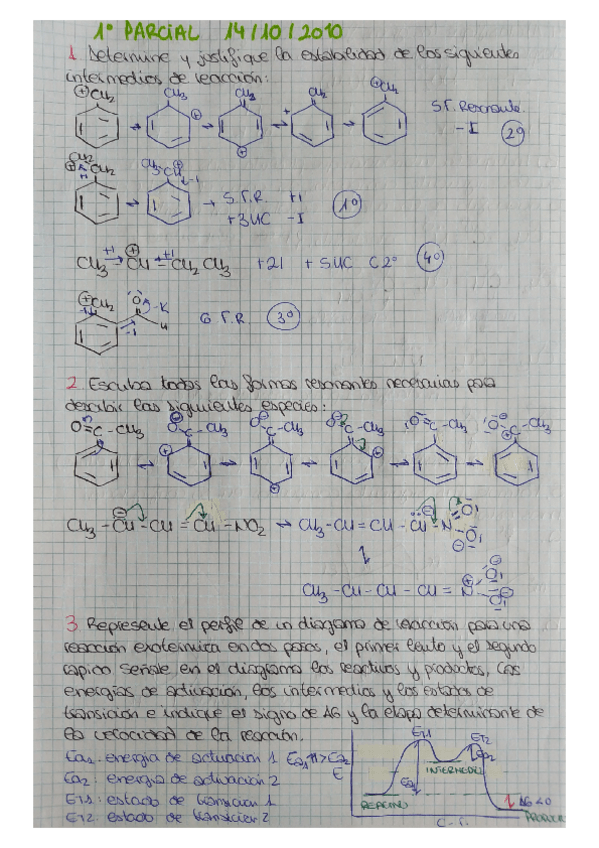 1º PARCIAL 14/10/2010
1. Determine y justifique la estabilidad de los siguientes
intermedios de reacción:
⊕CH₂ CH₃ ⊕ CH₂ + CH₂ ⊕CH₂ 5 F. Resonante
-I 2º
CH₃-CH ⊕ → 5 F.R +I 1º
+3HC -I
CH₃ - CH = CH₂ CH₃ +2I +5HC C2º 4º
⊕CH₂ O -K 6 F.R 3º
-I H
2. Escriba todas las formas resonantes necesarias para
describir las siguientes especies:
O=C-CH₃ O-C-CH₃ O-C-CH₃ O-C-CH₃ O=C-CH₃ O-C-CH₃
CH₃-CH-CH=CH-NO₂ → CH₃-CH=CH-CH-N O O
CH₃-CH-CH-CH=N O O
3 Represente el perfil de un diagrama de reacción para una
reacción exotérmica en dos pasos, el primer lento y el segundo
rapido señale en el diagrama los reactivos y productos, las
energías de activación, los intermedios y los estados de
transición e indique el signo de ΔG y la etapa determinante de
la velocidad de la reacción.
Ea₁: energía de activación 1 Ea₁>>Ea₂
Ea₂: energía de activación 2
ET1: estado de transicion 1
ET2: estado de transición 2
E ET1 ET2 Ea₁ Ea₂
INTERMEDIO
REACTIVO ΔG<0
C.r.